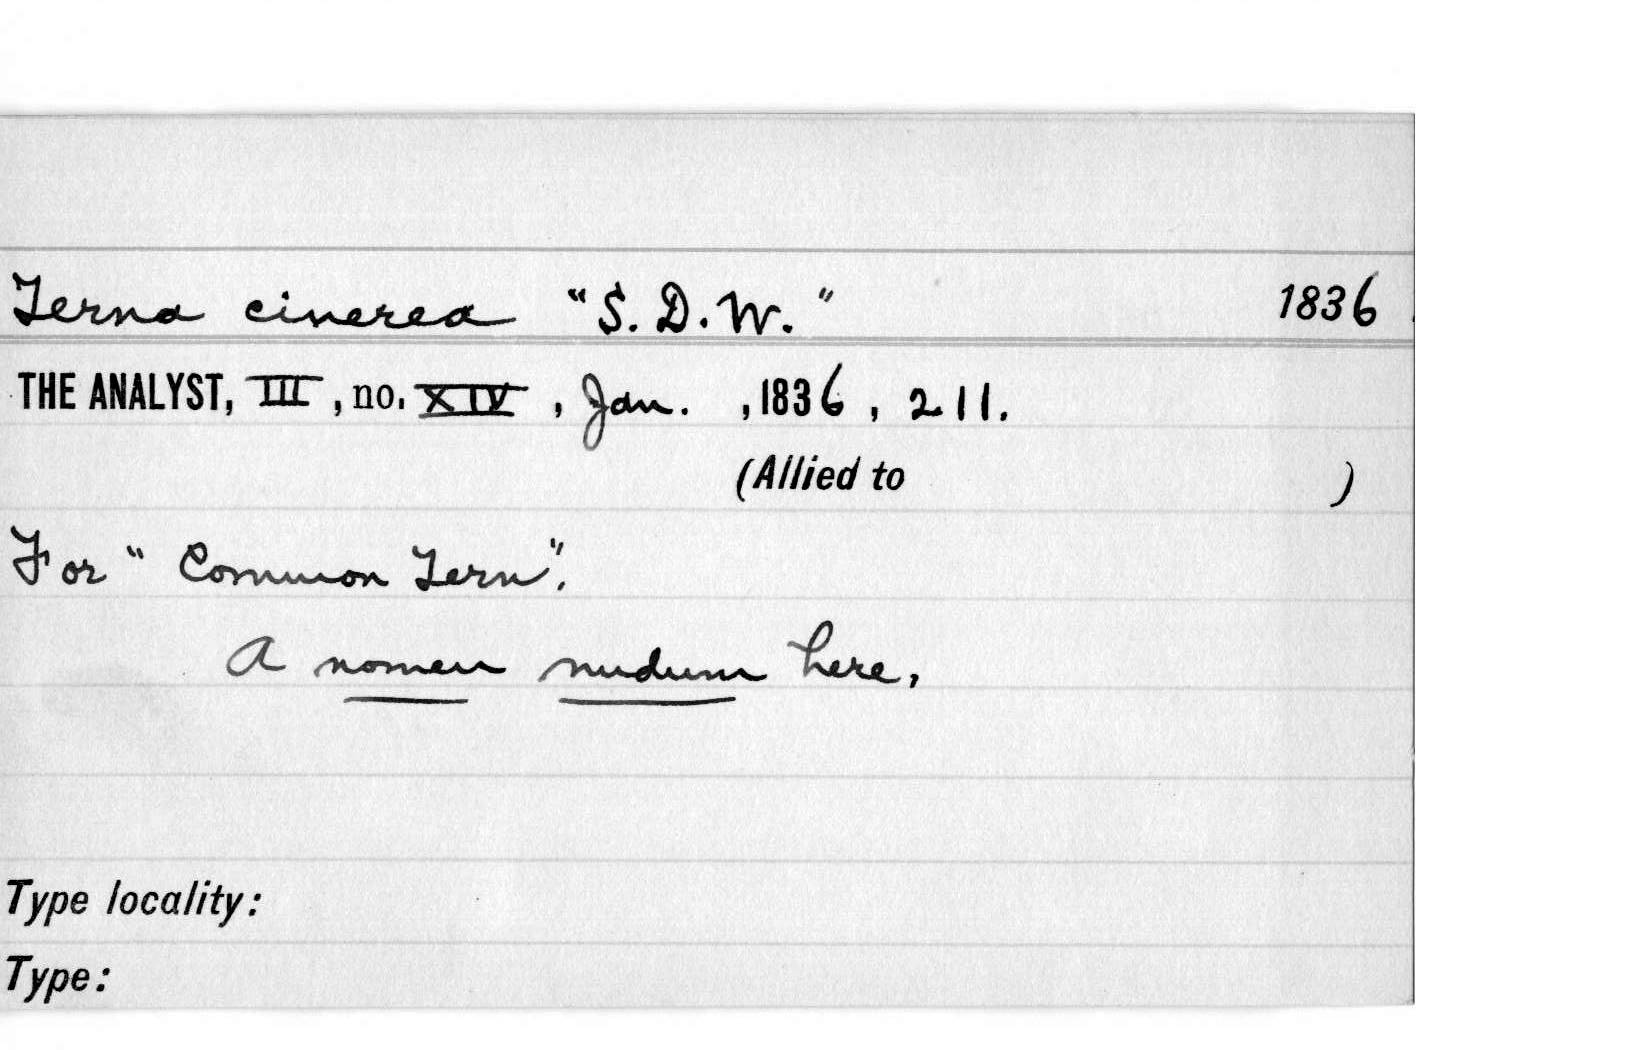 Terna cinerea "S. D. W." 1836
THE ANALYST, III, no. XIV, Jan. ,1836, 211.
(Allied to )
For "Common Tern".
A nomen nudum here,
Type locality:
Type: